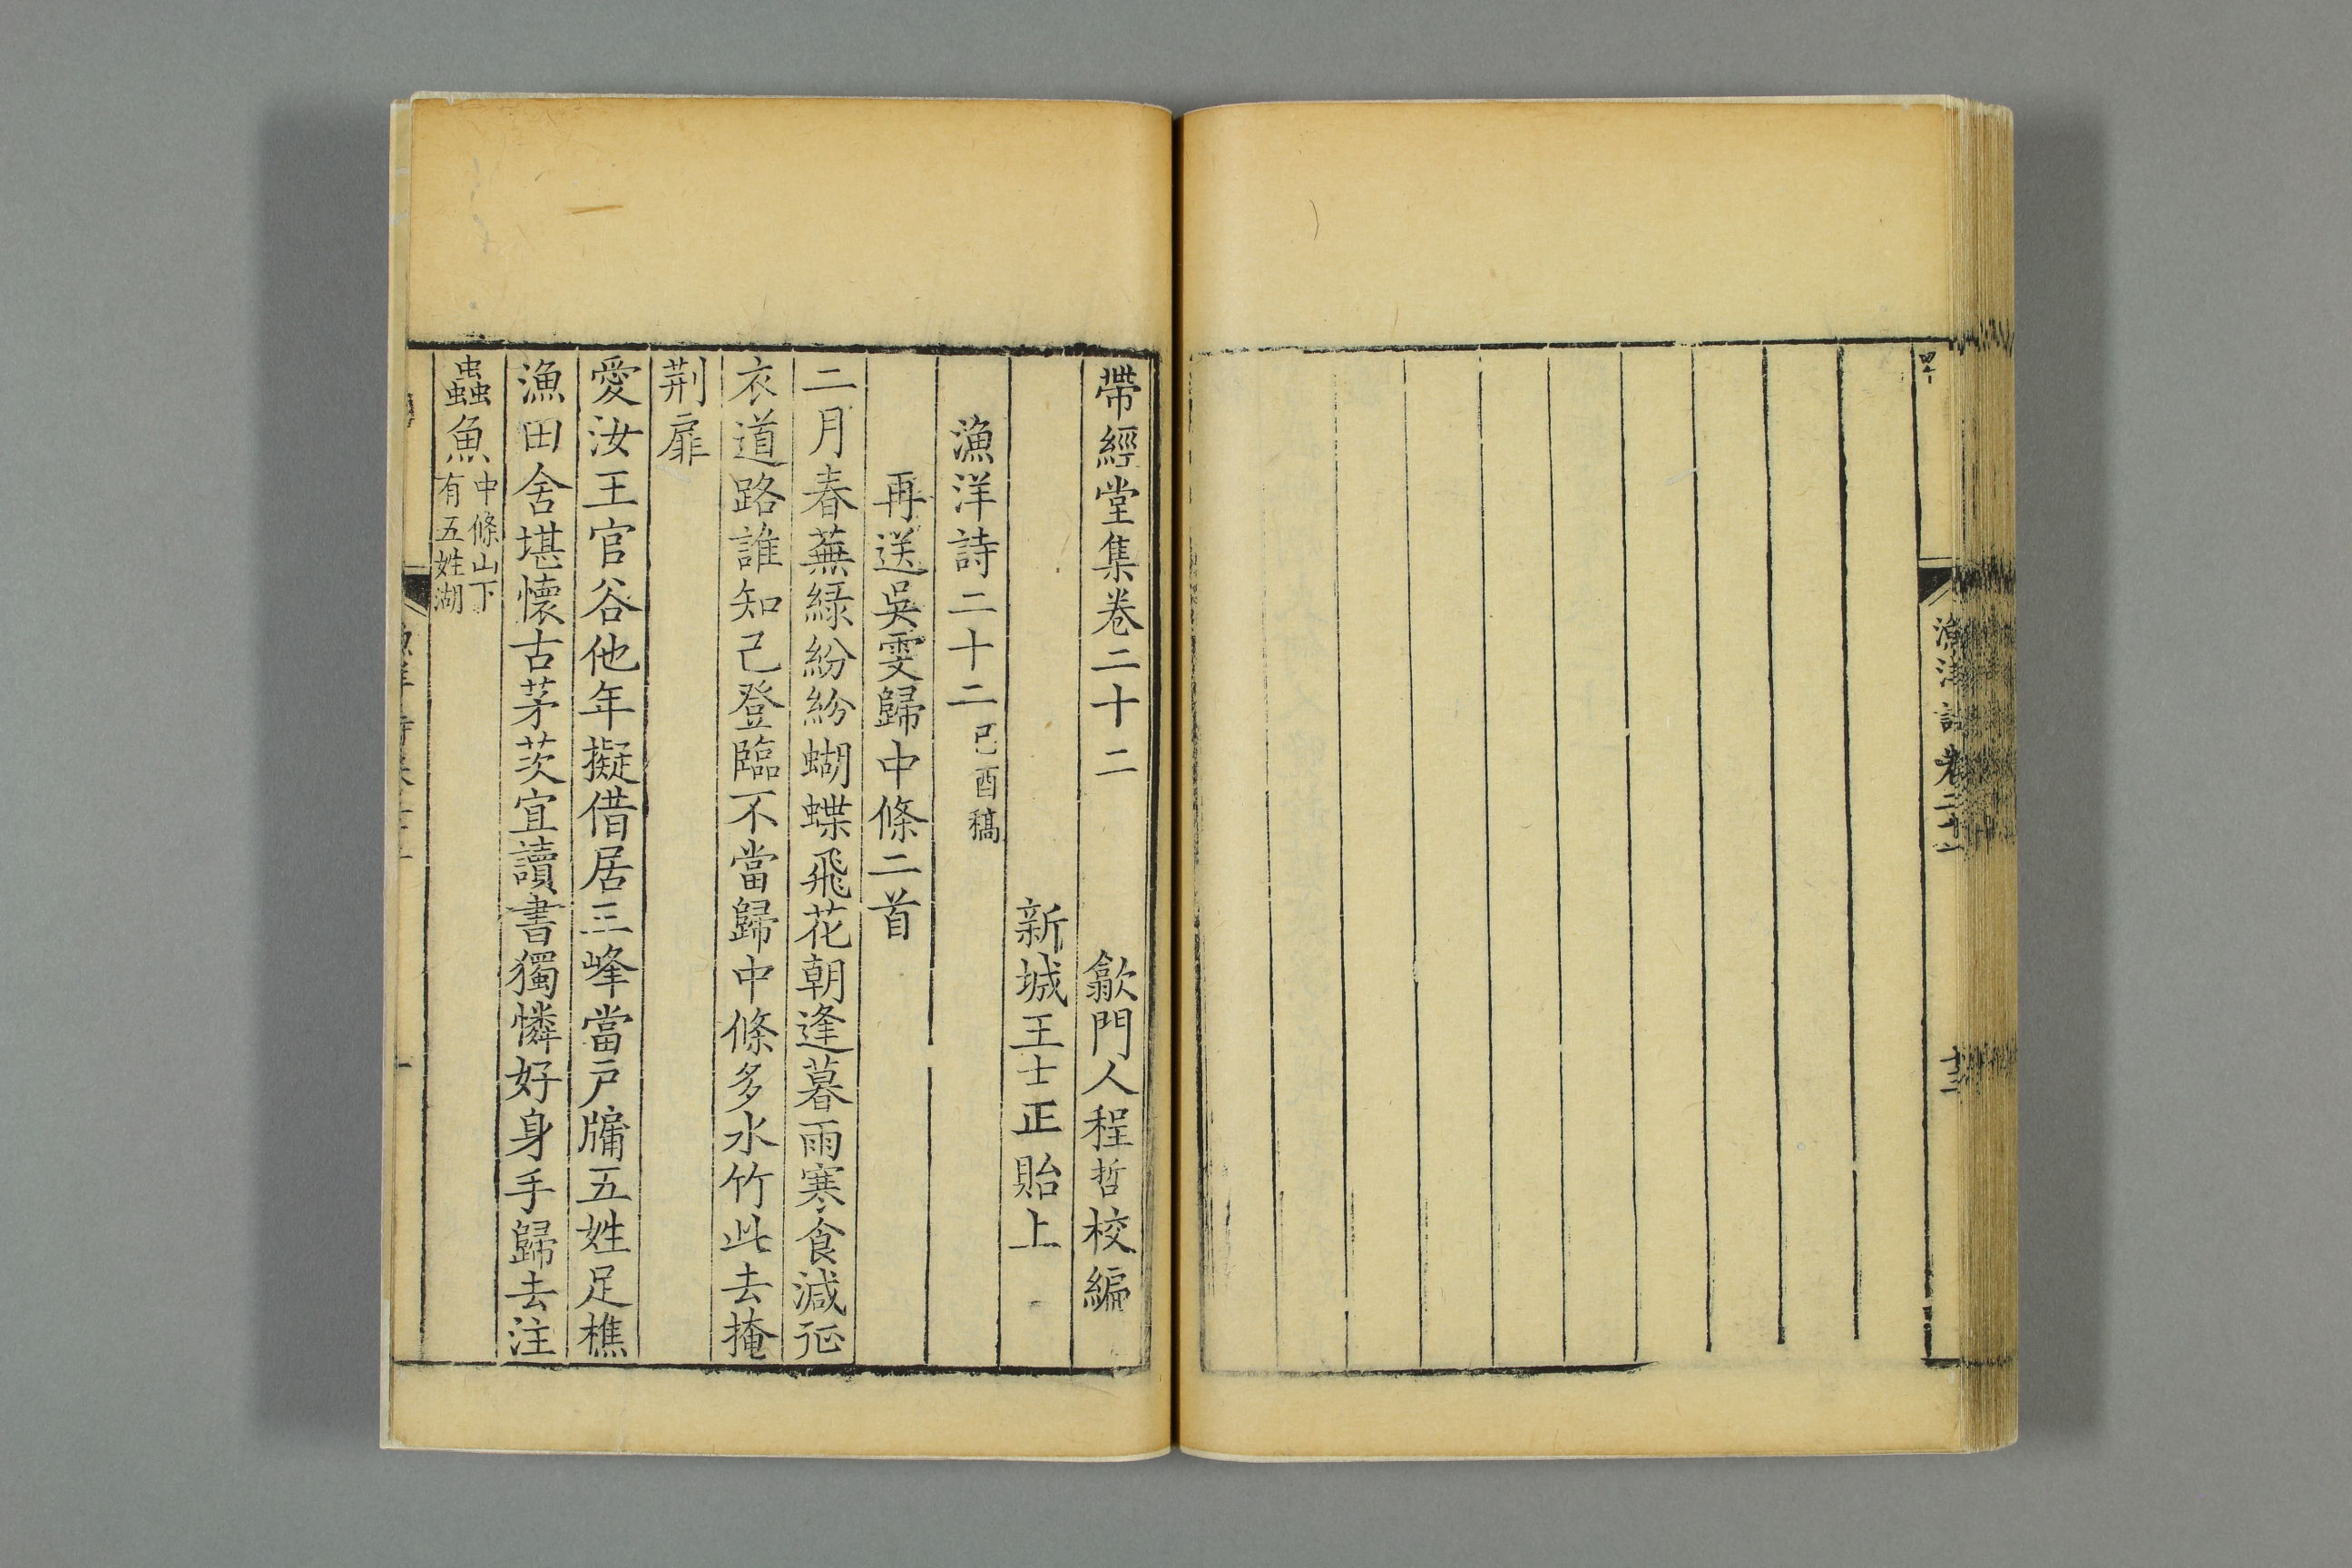 漁洋詩卷二十一
十二
帶經堂集卷二十二
歙門人程哲校編
新城王士正貽上
漁洋詩二十二己酉稿
再送吳雯歸中條二首
二月春蕪緑紛紛蝴蝶飛花朝逢暮雨寒食減征
衣道路誰知己登臨不當歸中條多水竹此去掩
荆扉
愛汝王官谷他年擬借居三峰當戸牖五姓足樵
漁田舍堪懷古茅茨宜讀書獨憐好身手歸去注
蟲魚中條山下有五姓湖